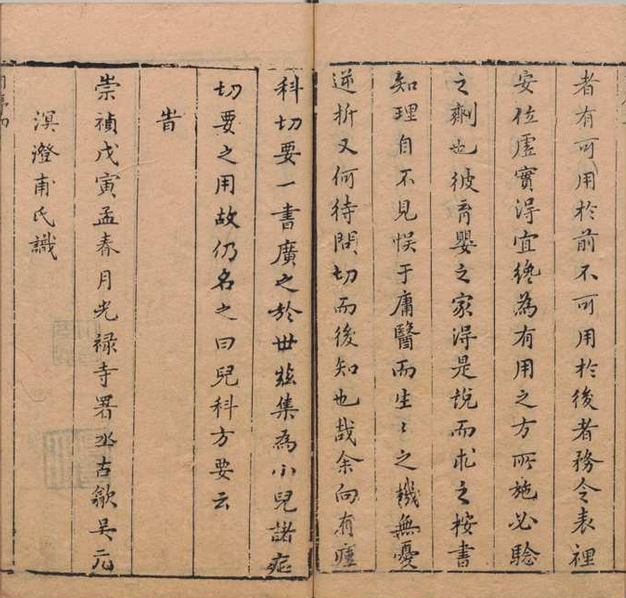 者有可用於前不可用於後者務令表裡
安位虛實得宜纔為有用之方所施必驗
之劑也彼育嬰之家得是說而求之按書
知理自不見悞于庸醫而生〻之機無憂
逆折又何待問切而後知也哉余向有痘
科切要一書廣之於世茲集為小兒諸症
切要之用故仍名之曰兒科方要云
旹
崇禎戊寅孟春月光禄寺署丞古歙吳元
溟澄甫氏識